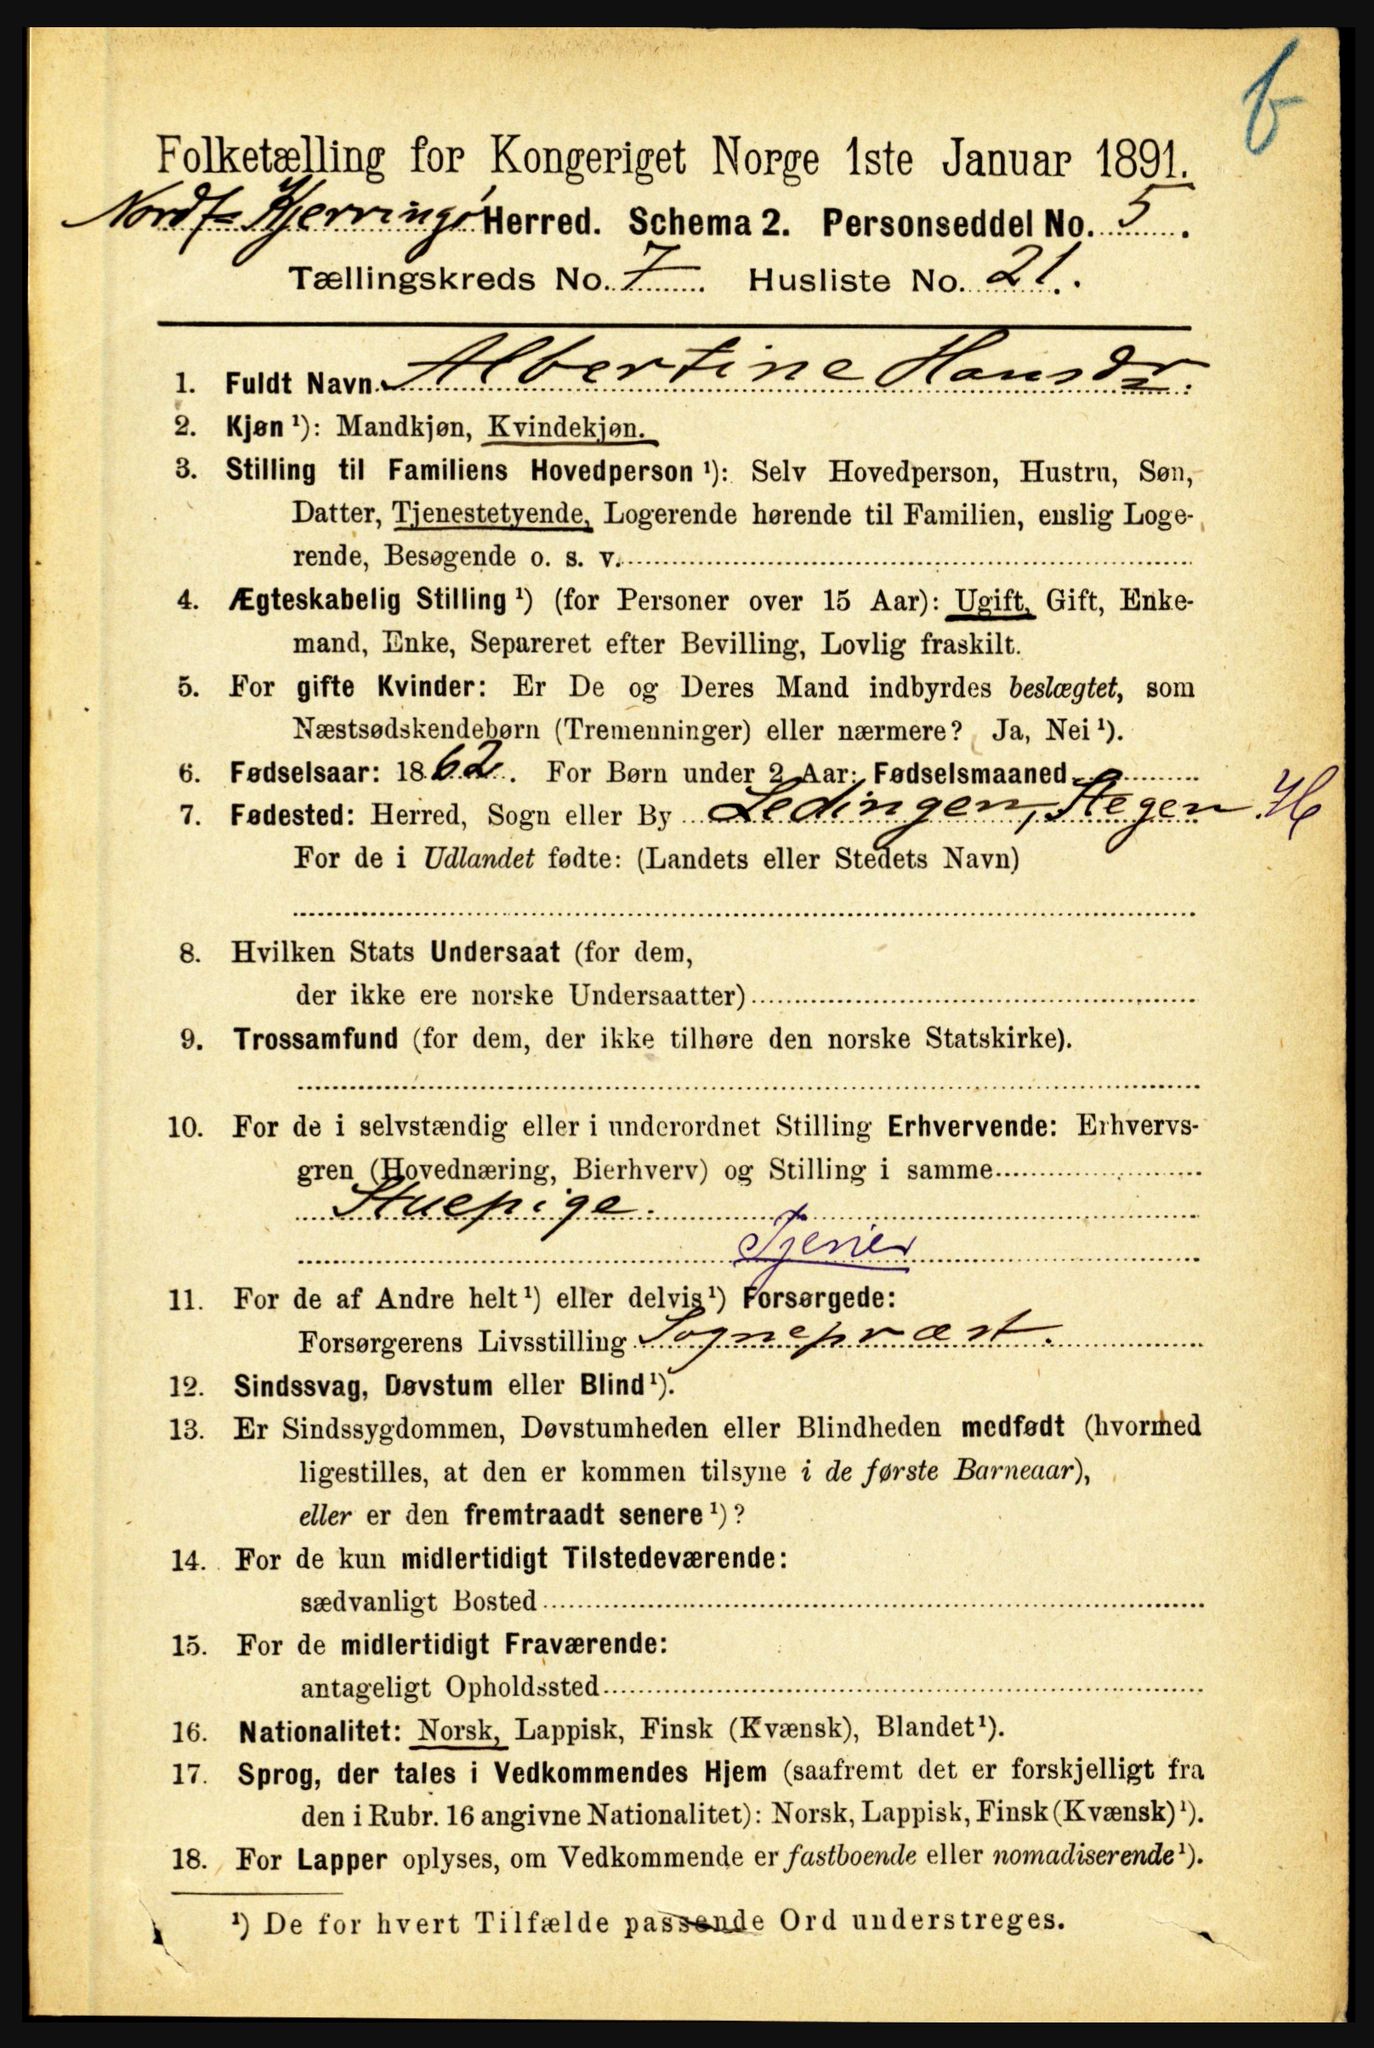 b
Folketælling for Kongeriget Norge 1ste Januar 1891.
Nordf- Kjerringø Herred. Schema 2. Personseddel No. 5.
Tællingskreds No. 7. Husliste No. 21.
1. Fuldt Navn Albertine Hansdr.
2. Kjøn ¹): Mandkjøn, Kvindekjøn.
3. Stilling til Familiens Hovedperson ¹): Selv Hovedperson, Hustru, Søn,
Datter, Tjenestetyende, Logerende hørende til Familien, enslig Loge-
rende, Besøgende o. s. v.
4. Ægteskabelig Stilling ¹) (for Personer over 15 Aar): Ugift, Gift, Enke-
mand, Enke, Separeret efter Bevilling, Lovlig fraskilt.
5. For gifte Kvinder: Er De og Deres Mand indbyrdes beslægtet, som
Næstsødskendebørn (Tremenninger) eller nærmere? Ja, Nei ¹).
6. Fødselsaar: 1862. For Børn under 2 Aar: Fødselsmaaned
7. Fødested: Herred, Sogn eller By Ledingen, Stegen H
For de i Udlandet fødte: (Landets eller Stedets Navn)
8. Hvilken Stats Undersaat (for dem,
der ikke ere norske Undersaatter)
9. Trossamfund (for dem, der ikke tilhøre den norske Statskirke).
10. For de i selvstændig eller i underordnet Stilling Erhvervende: Erhvervs-
gren (Hovednæring, Bierhverv) og Stilling i samme
Stuepige.
Tjener
11. For de af Andre helt ¹) eller delvis ¹) Forsørgede:
Forsørgerens Livsstilling Sognepræst.
12. Sindssvag, Døvstum eller Blind ¹).
13. Er Sindssygdommen, Døvstumheden eller Blindheden medfødt (hvormed
ligestilles, at den er kommen tilsyne i de første Barneaar),
eller er den fremtraadt senere ¹)?
14. For de kun midlertidigt Tilstedeværende:
sædvanligt Bosted
15. For de midlertidigt Fraværende:
antageligt Opholdssted
16. Nationalitet: Norsk, Lappisk, Finsk (Kvænsk), Blandet ¹).
17. Sprog, der tales i Vedkommendes Hjem (saafremt det er forskjelligt fra
den i Rubr. 16 angivne Nationalitet): Norsk, Lappisk, Finsk (Kvænsk) ¹).
18. For Lapper oplyses, om Vedkommende er fastboende eller nomadiserende ¹).
¹) De for hvert Tilfælde passende Ord understreges.